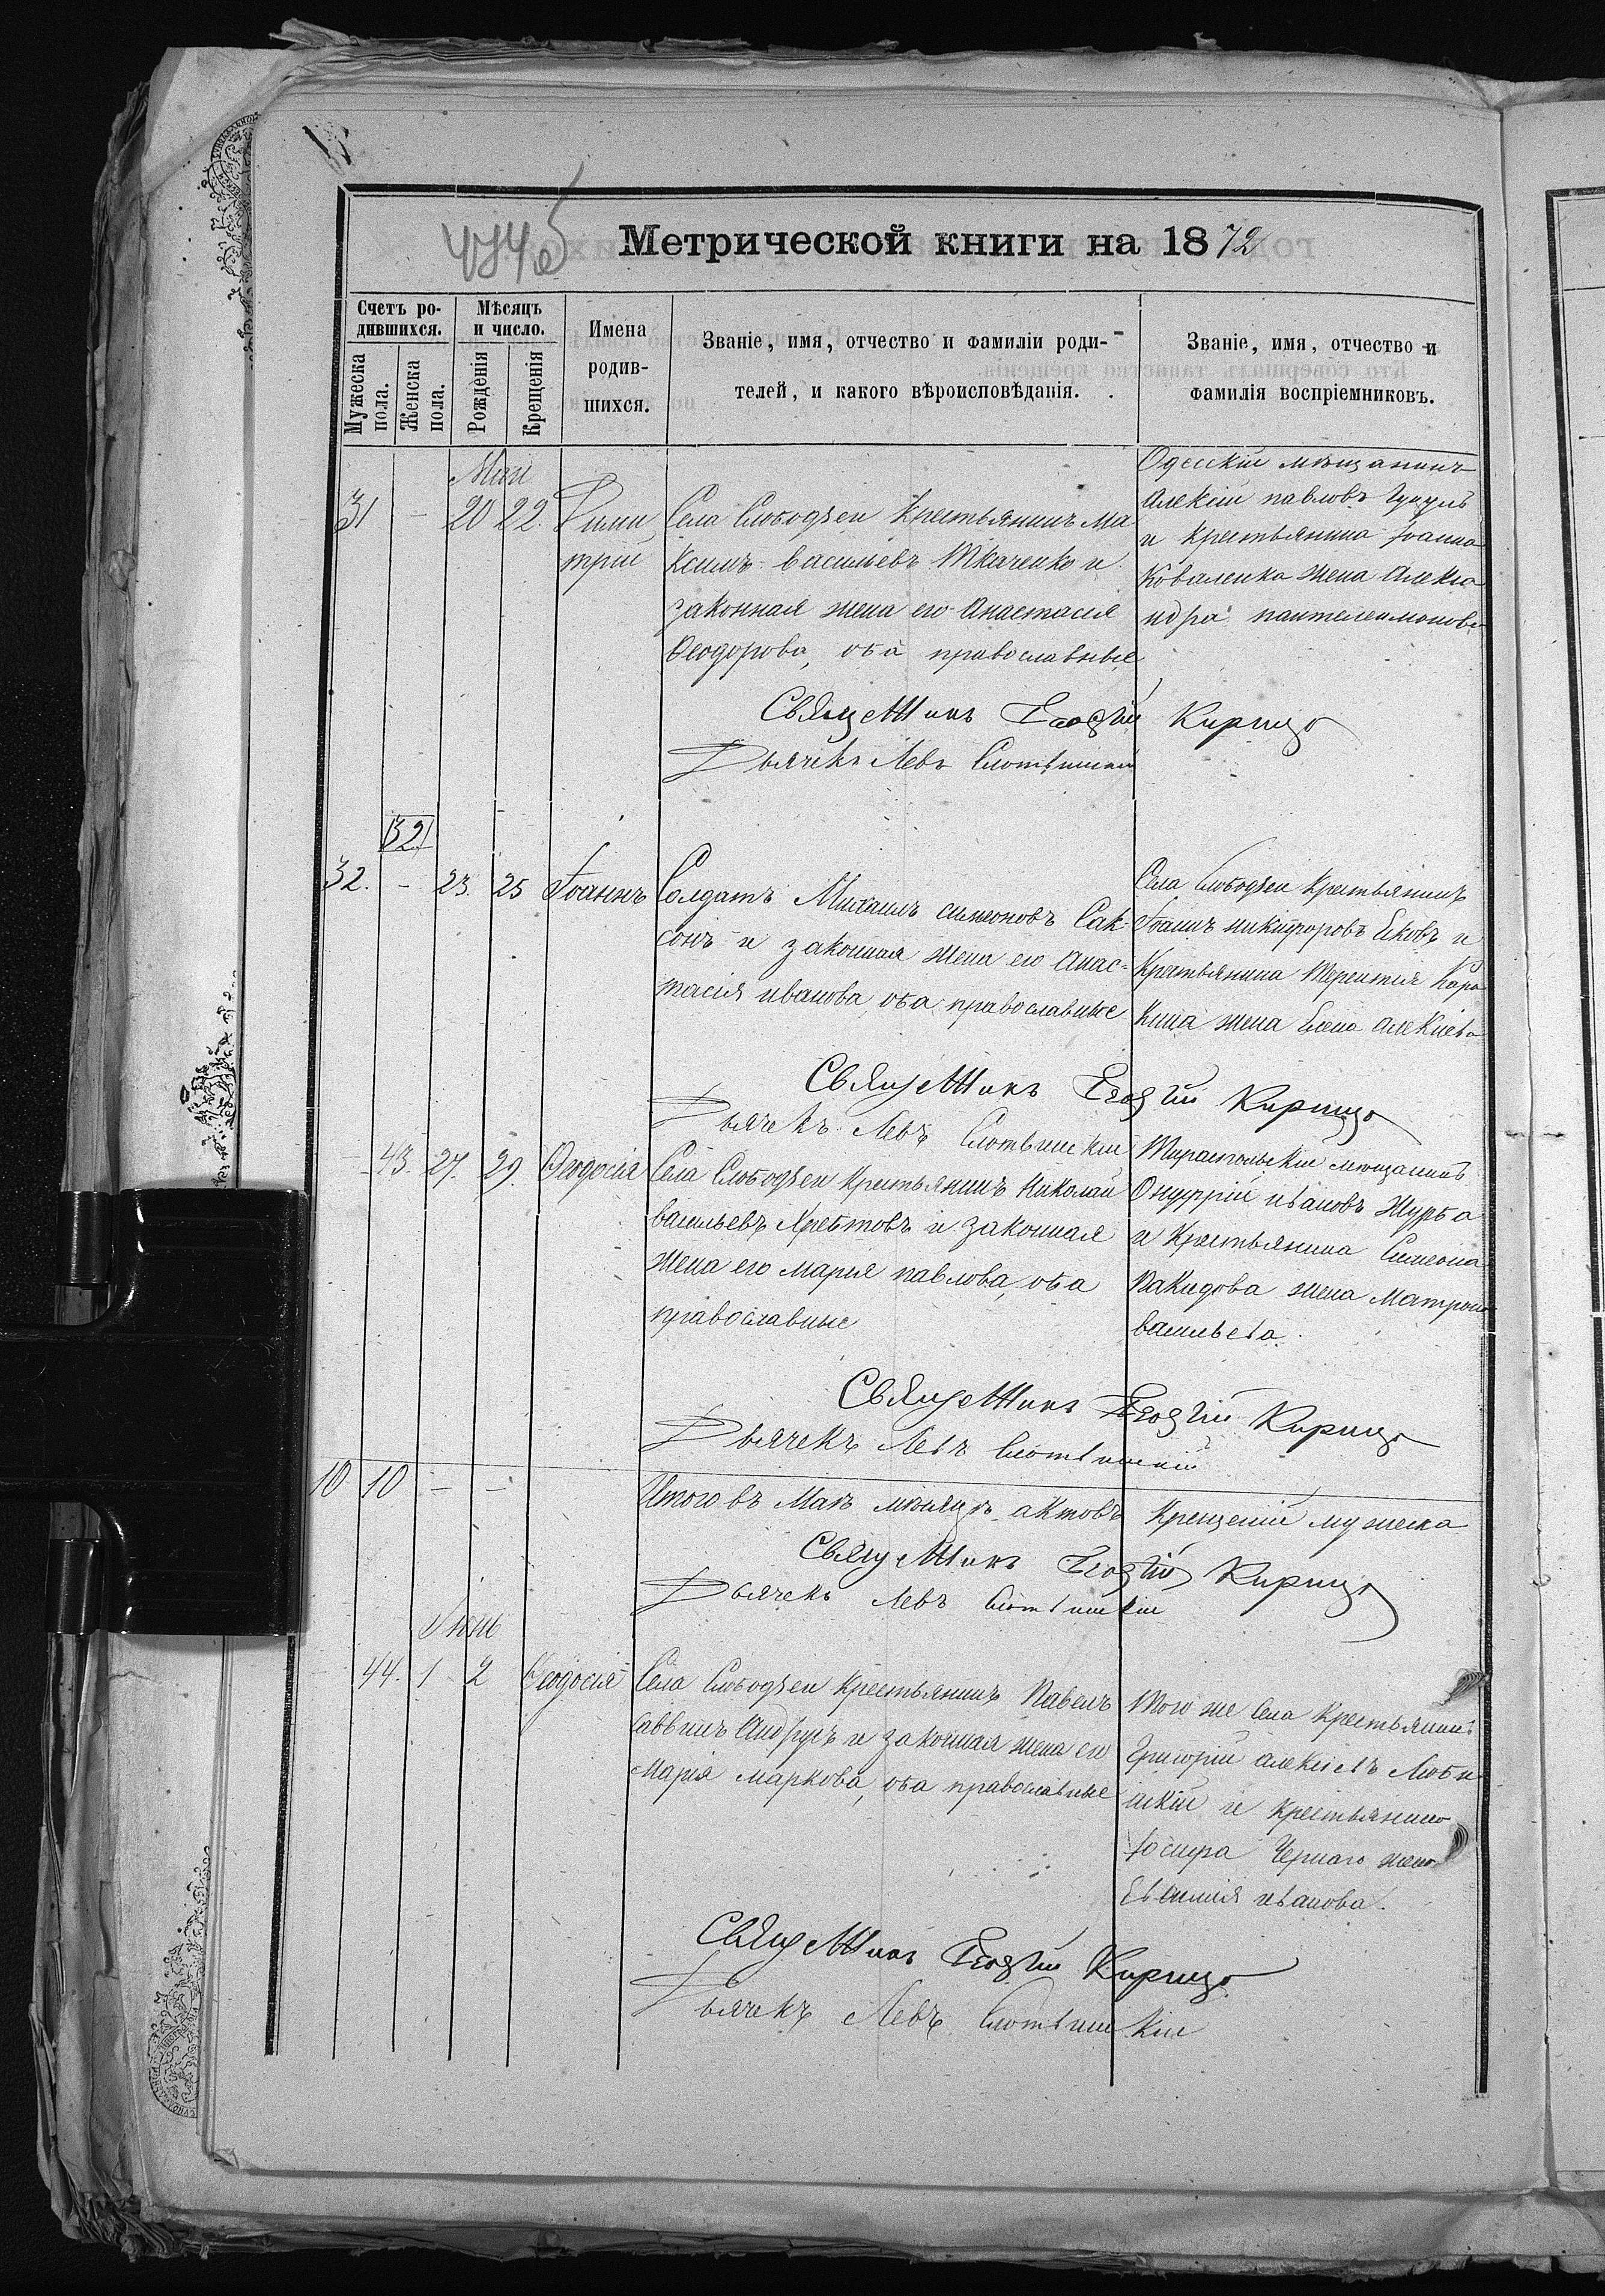 Метрической книги на 1872
Счетъ ро-
дившихся.
Мужеска
пола.
Женска
пола.
Мѣсяцъ
и число.
Рожденія
Крещенія
Имена
родив-
шихся.
Званіе, имя, отчество и фамиліи роди-
телей, и какого вѣроисповѣданія.
Званіе, имя, отчество и
фамилія воспріемниковъ.
Май
31 - 20 22. Дими
трій
Села Слободзеи Крестьянинъ Ма
ксимъ Васильевъ Ткаченко и
законная жена его Анастасія
Ѳеодорова, оба православные
Одесскій мѣщанинъ
Алексій павловъ
и крестьянина Іоанна
Коваленка жена Алекса
ндра пантелеимонова
Священникъ Георгій Кирица
Дьячекъ Левъ
32
32. - 23. 25 Іоаннъ
Солдатъ Михаилъ симеоновъ Сак
сонъ и законная жена его Анас-
тасія иванова, оба православные
Села Слободзеи Крестьянинъ
Іоаннъ никифоровъ Ековъ и
Крестьянина Терентія Кара
жена Елена Алексіева
Священникъ Георгій Кирица
Дьячекъ Левъ
- 43. 27. 29. Ѳеодосія
Села Слободзеи Крестьянинъ Николай
васильевъ Хрестовъ и законная
жена его Марія павлова, оба
православные
Тираспольскій мѣщанинъ
Онуфрій ивановъ Журба
и Крестьянина Симеона
жена Матрона
васильева.
Священникъ Георгій Кирица
Дьячекъ Левъ
10 10 - -
Итого въ Маѣ мѣсяцѣ актовъ Крещеній мужеска
Священникъ Георгій Кирица
Дьячекъ Левъ
Іюнь
44. 1 2 Ѳеодосія
Села Слободзеи Крестьянинъ Павелъ
саввинъ Андрусъ и законная жена его
Марія маркова, оба православные
Того же Села Крестьянинъ
Григорій алексіевъ
и крестьянина
Іосифа Чернаго жена
Евѳимія иванова.
Священникъ Георгій Кирица
Дьячекъ Левъ